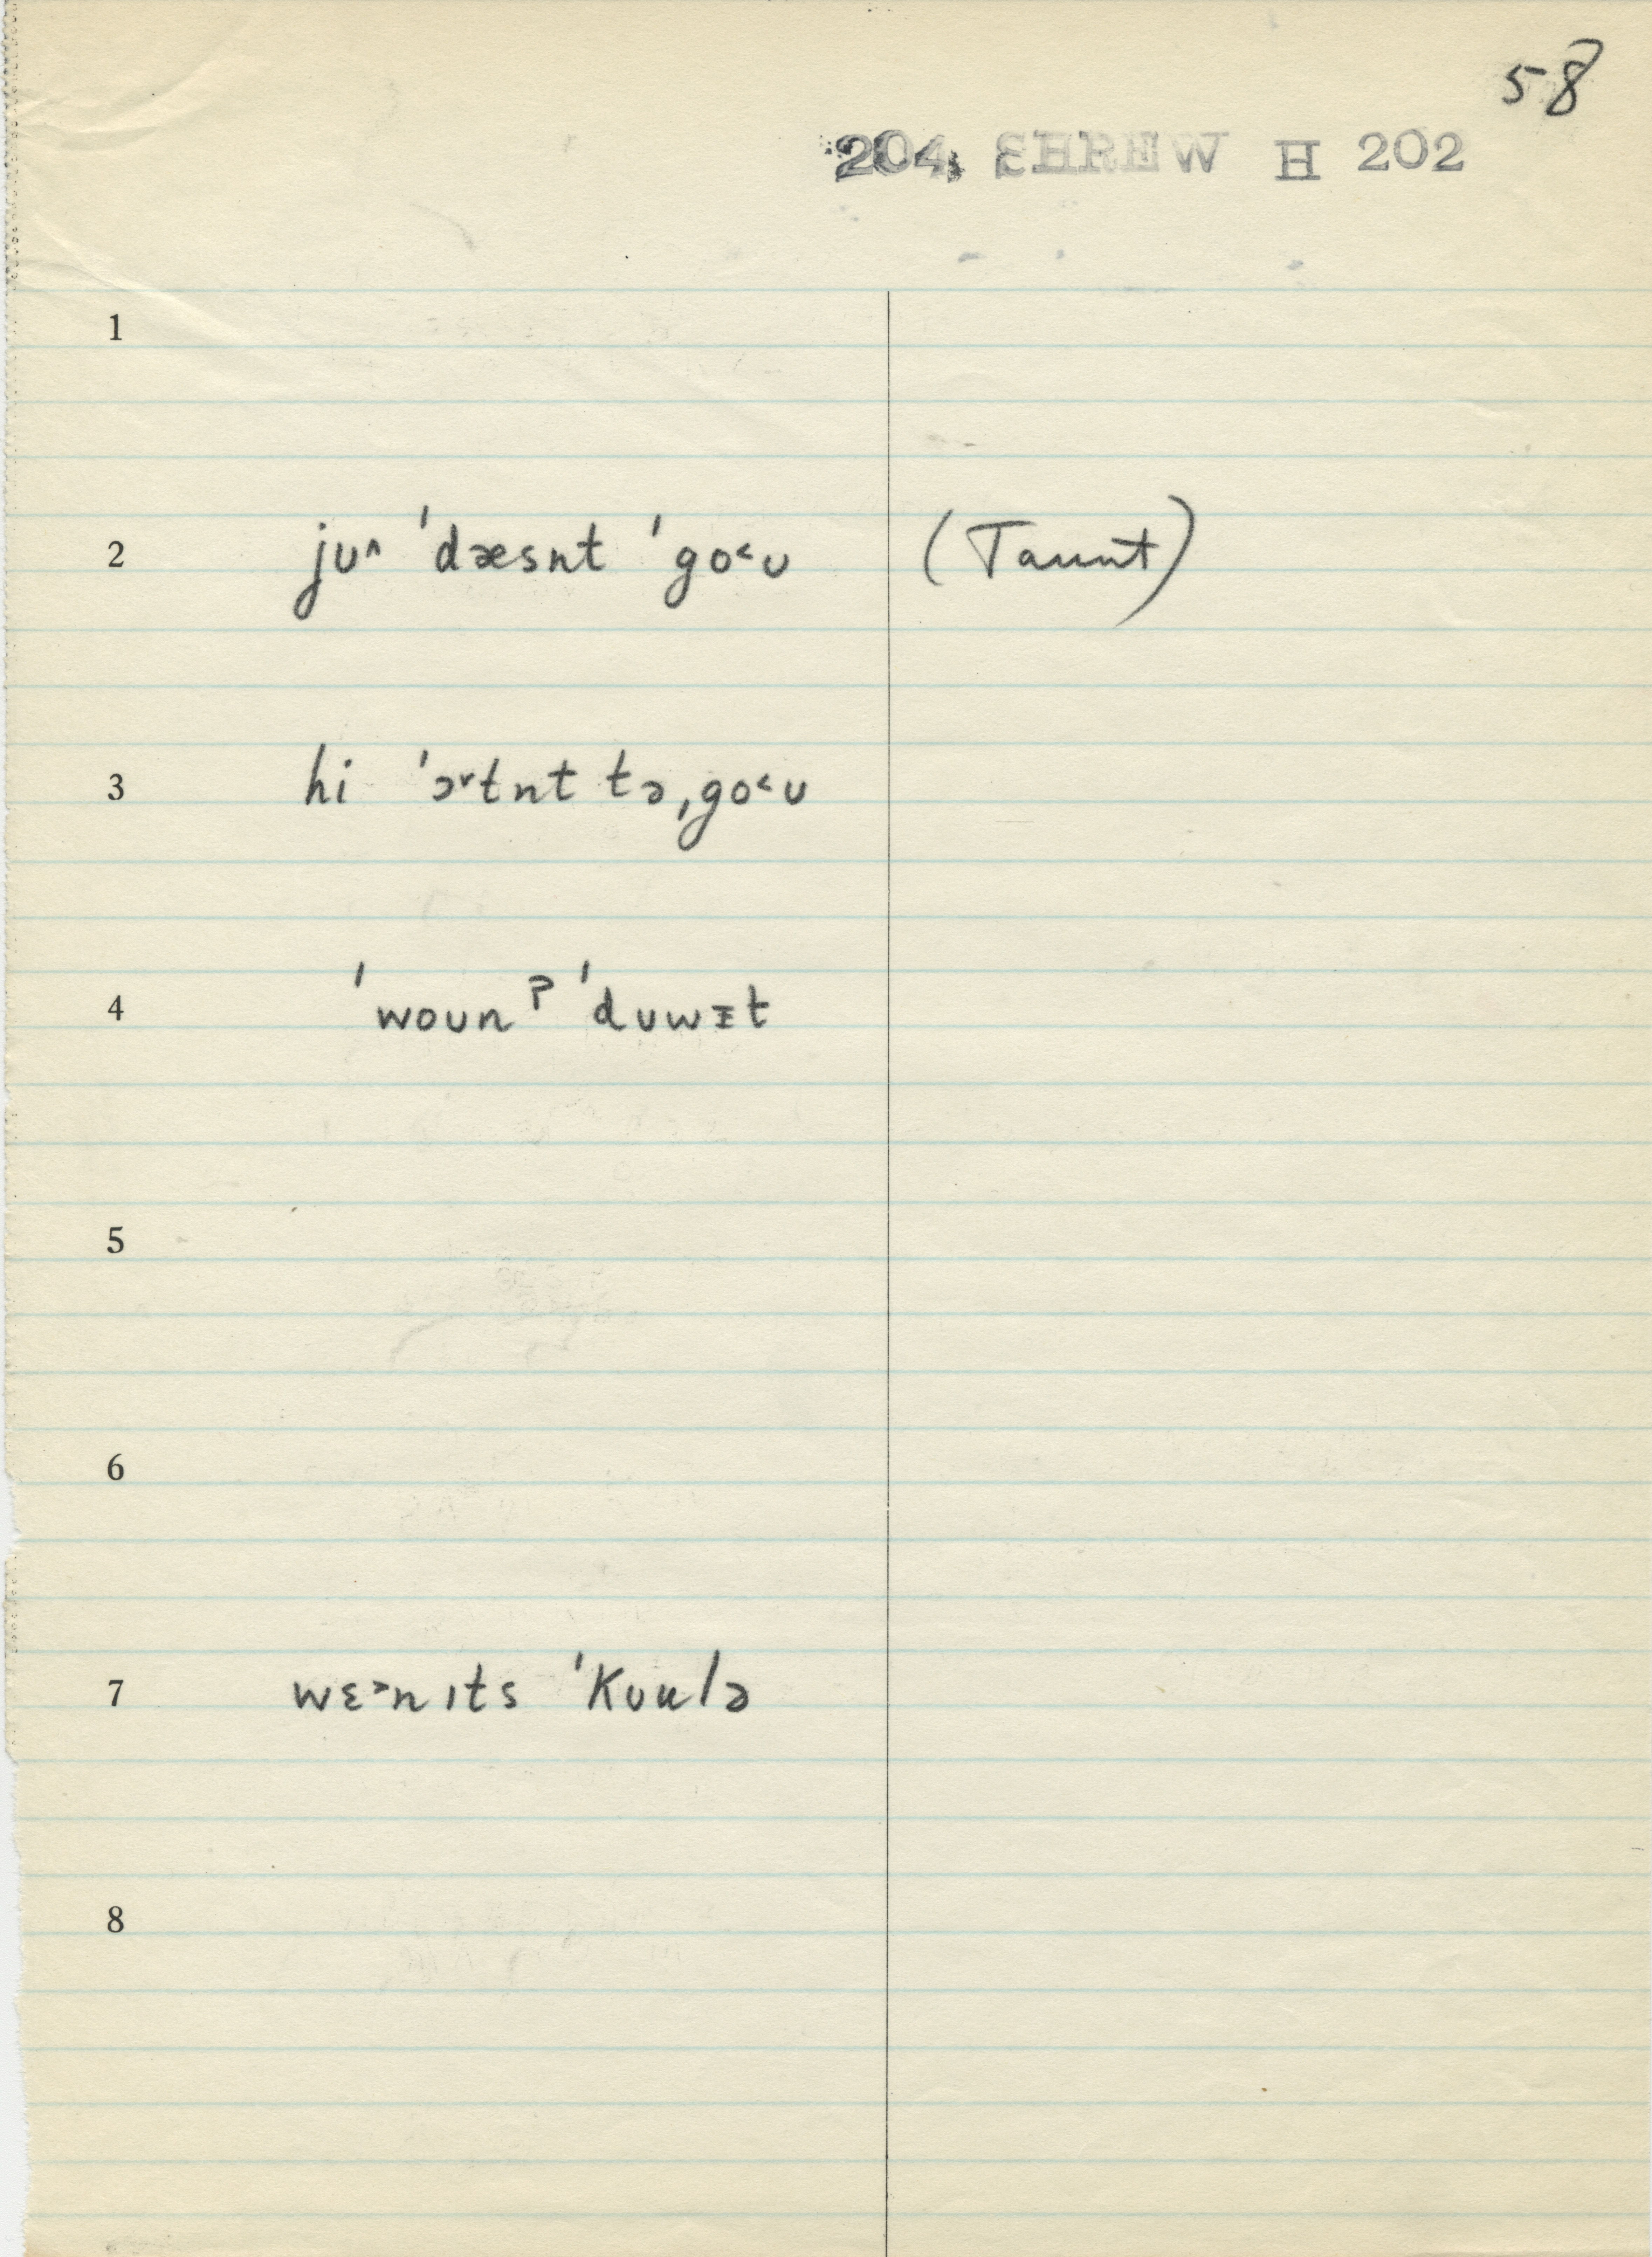 58
204, SHREW H 202
1
2 jʊ^ ˈdæsnt ˈgo˂ʊ (Taunt)
3 hi ˈɔ˅tnt tə ˌgo˂ʊ
4 ˈwoun ʔ ˈdʊwᵻt
5
6
7 wɛ˃n ɪts ˈkʊulə
8